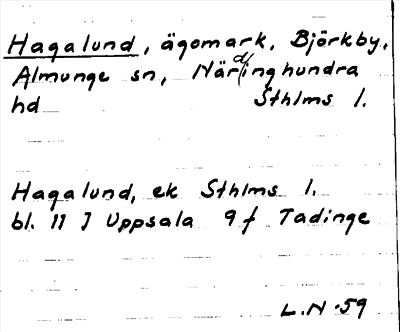 Hagalund, ägomark, Björkby,
Almunge sn, Närdinghundra
hd Sthlms l.
Hagalund, ek Sthlms l.
bl. 11 J Uppsala 9 f Tadinge
L.N. 59